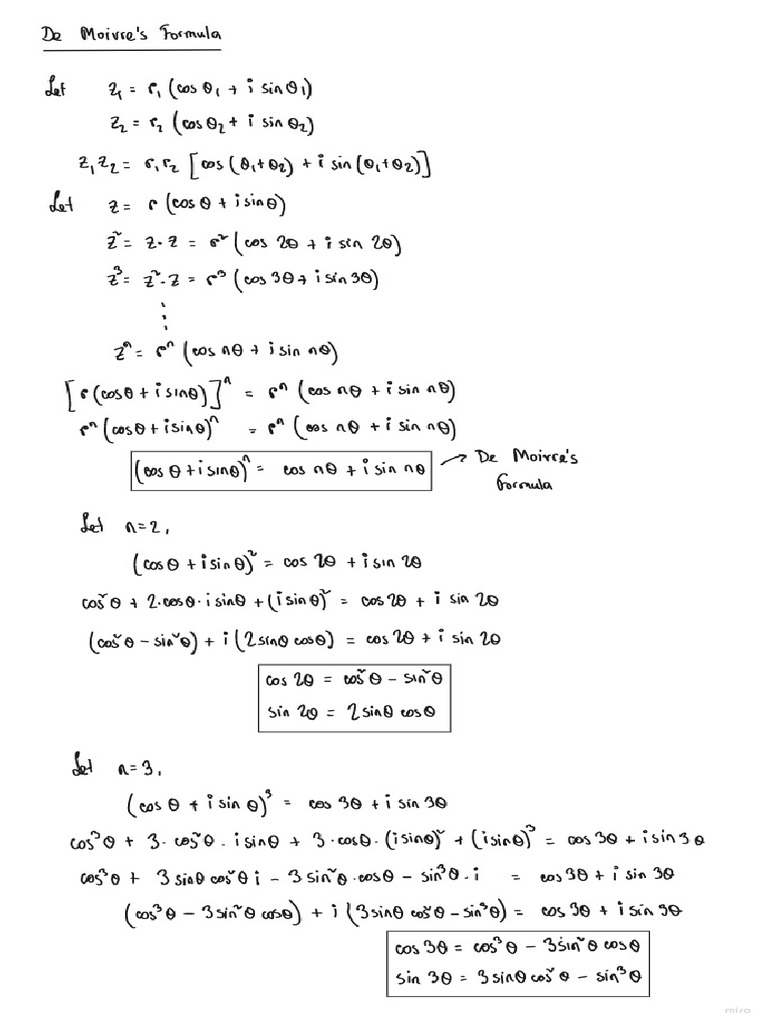 De Moivre's Formula
Let z₁ = r₁ (cos θ₁ + i sin θ₁)
z₂ = r₂ (cos θ₂ + i sin θ₂)
z₁ z₂ = r₁ r₂ [cos (θ₁+θ₂) + i sin (θ₁+θ₂)]
Let z = r (cos θ + i sin θ)
z² = z · z = r² (cos 2θ + i sin 2θ)
z³ = z² · z = r³ (cos 3θ + i sin 3θ)
⋮
zⁿ = rⁿ (cos nθ + i sin nθ)
[r (cos θ + i sin θ)]ⁿ = rⁿ (cos nθ + i sin nθ)
rⁿ (cos θ + i sin θ)ⁿ = rⁿ (cos nθ + i sin nθ)
(cos θ + i sin θ)ⁿ = cos nθ + i sin nθ → De Moivre's
Formula
Let n=2,
(cos θ + i sin θ)² = cos 2θ + i sin 2θ
cos² θ + 2·cos θ · i sin θ + (i sin θ)² = cos 2θ + i sin 2θ
(cos² θ − sin² θ) + i (2 sin θ cos θ) = cos 2θ + i sin 2θ
cos 2θ = cos² θ − sin² θ
sin 2θ = 2 sin θ cos θ
Let n=3,
(cos θ + i sin θ)³ = cos 3θ + i sin 3θ
cos³ θ + 3 · cos² θ · i sin θ + 3 · cos θ · (i sin θ)² + (i sin θ)³ = cos 3θ + i sin 3θ
cos³ θ + 3 sin θ cos² θ i − 3 sin² θ · cos θ − sin³ θ · i = cos 3θ + i sin 3θ
(cos³ θ − 3 sin² θ cos θ) + i (3 sin θ cos² θ − sin³ θ) = cos 3θ + i sin 3θ
cos 3θ = cos³ θ − 3 sin² θ cos θ
sin 3θ = 3 sin θ cos² θ − sin³ θ
miro